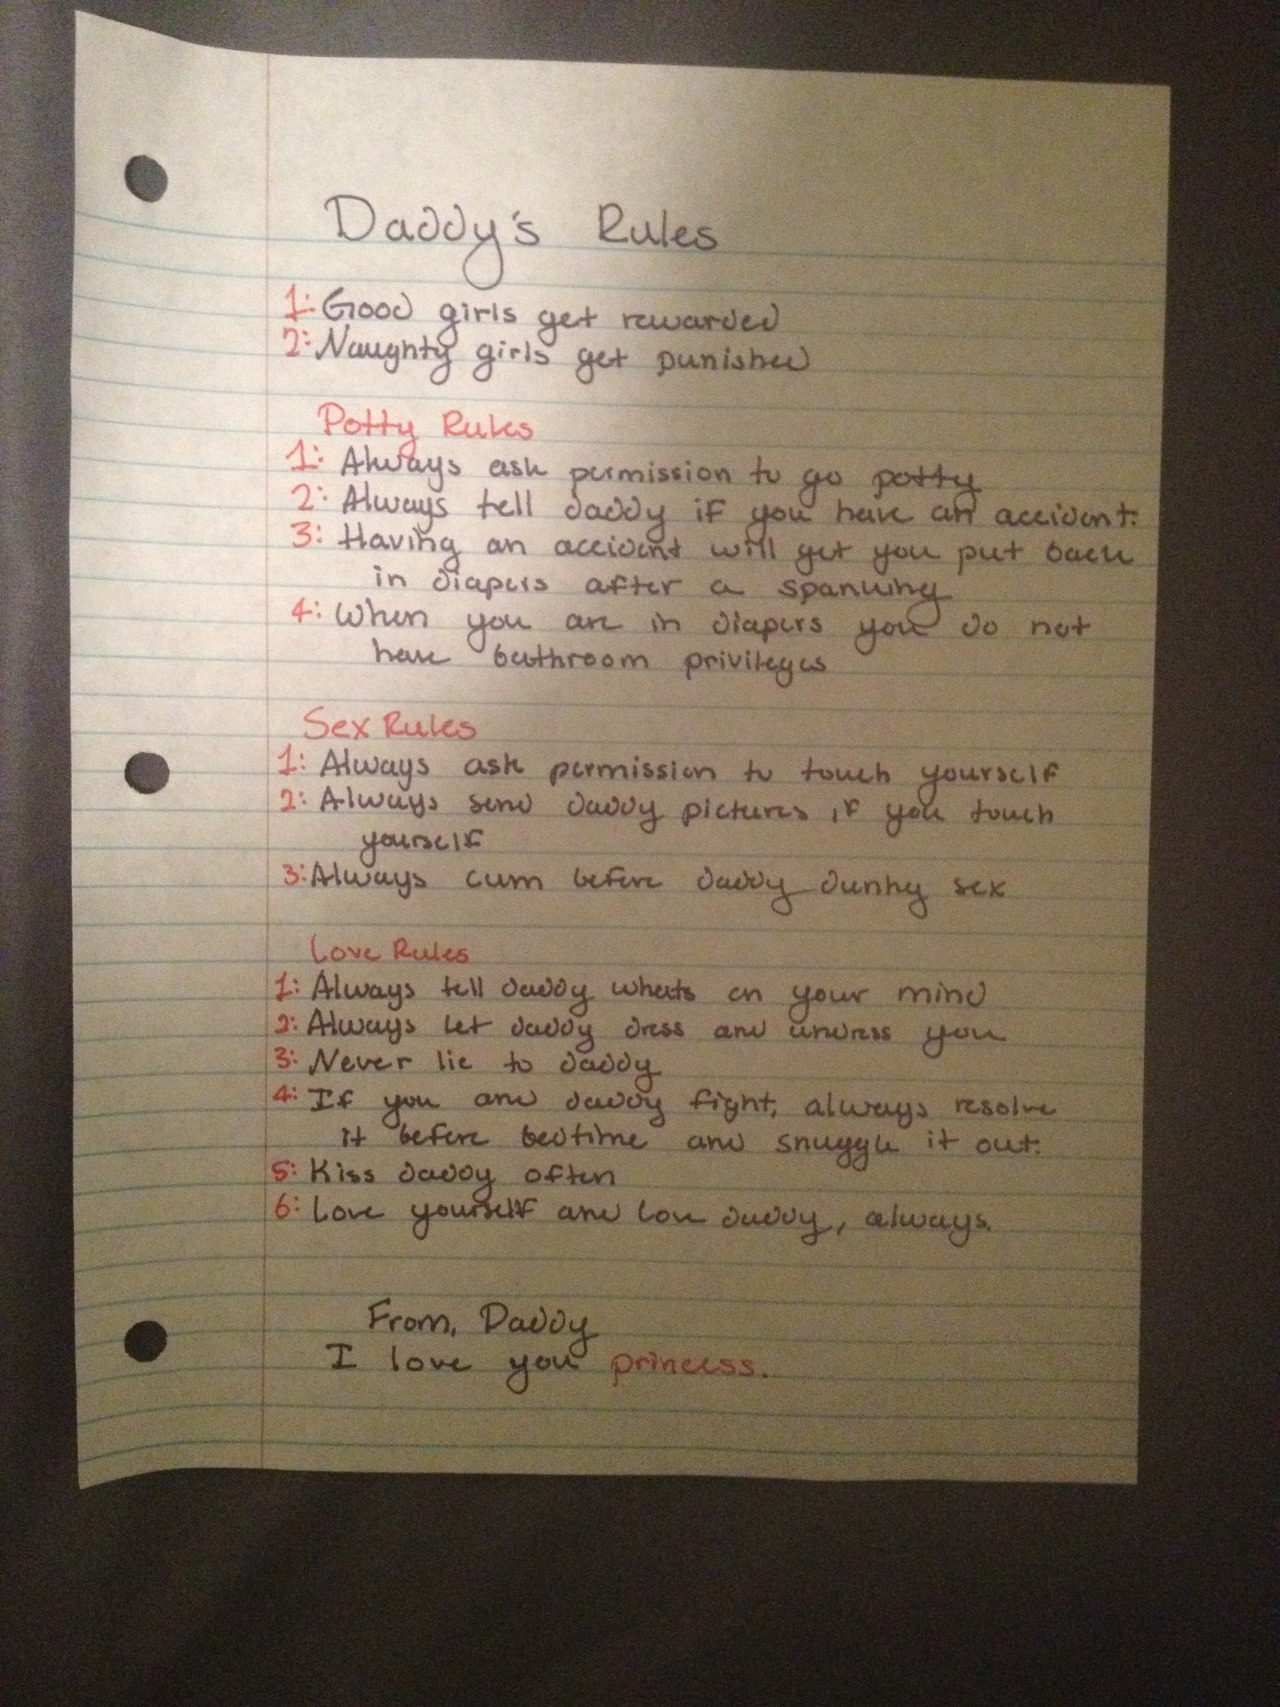 Daddy's Rules
1: Good girls get rewarded
2: Naughty girls get punished
Potty Rules
1: Always ask permission to go potty
2: Always tell daddy if you have an accident.
3: Having an accident will get you put back
in diapers after a spanking
4: When you are in diapers you do not
have bathroom privileges
Sex Rules
1: Always ask permission to touch yourself
2: Always send daddy pictures if you touch
yourself
3: Always cum before daddy during sex
Love Rules
1: Always tell daddy whats on your mind
2: Always let daddy dress and undress you
3: Never lie to daddy
4: If you and daddy fight, always resolve
it before bedtime and snuggle it out.
5: Kiss daddy often
6: Love yourself and love daddy, always.
From, Daddy
I love you princess.